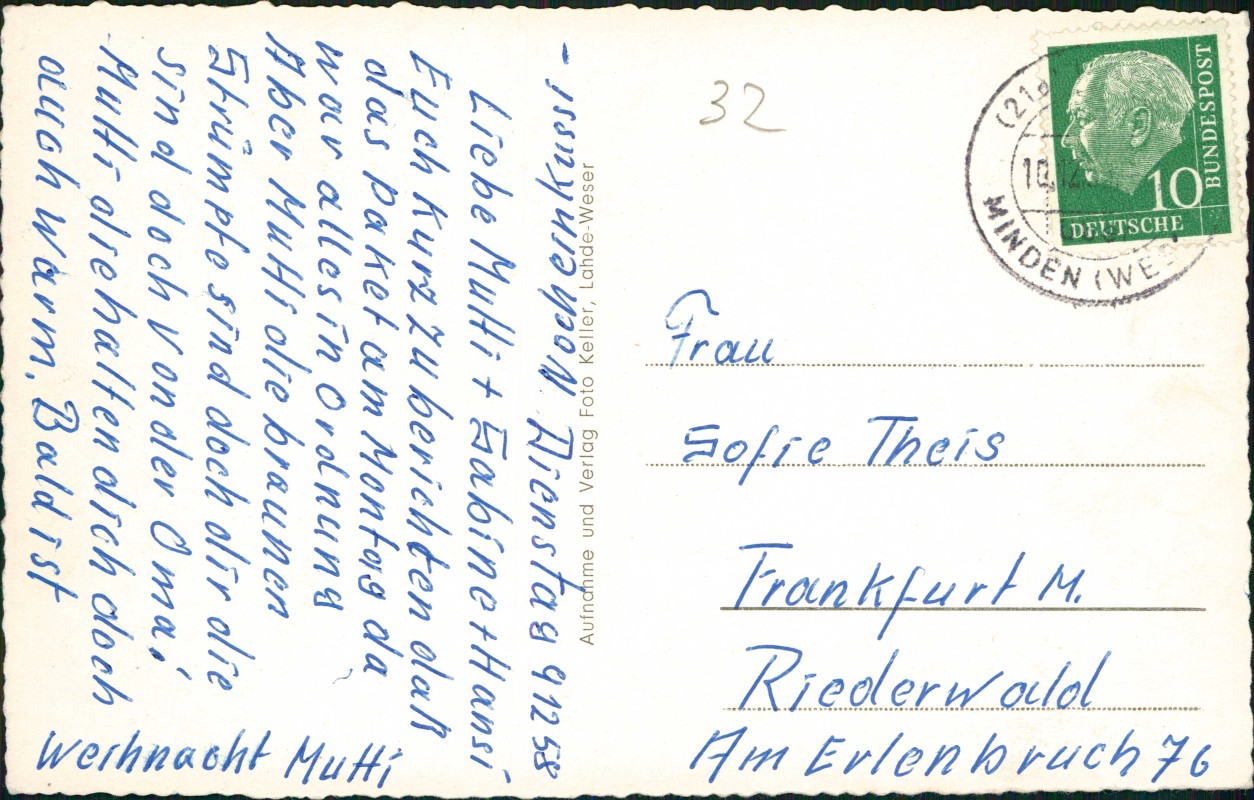 Dienstag 9 12 58
Nobernkussi -
Liebe Mutti + Sabine + Hansi
Euch kurz zu berichten daß
das Paket am Montag da
war alles in Ordnung
Aber Mutti die braunen
Strümpfe sind doch dir die
sind doch von der Oma,
Mutti die halten dich doch
auch warm. Bald ist
Weihnacht Mutti
Aufnahme und Verlag Foto Keller, Lahde-Weser
32
BUNDESPOST
10
DEUTSCHE
(21a)
10.12.
MINDEN (WES
Frau
Sofie Theis
Frankfurt M.
Riederwald
Am Erlenbruch 76